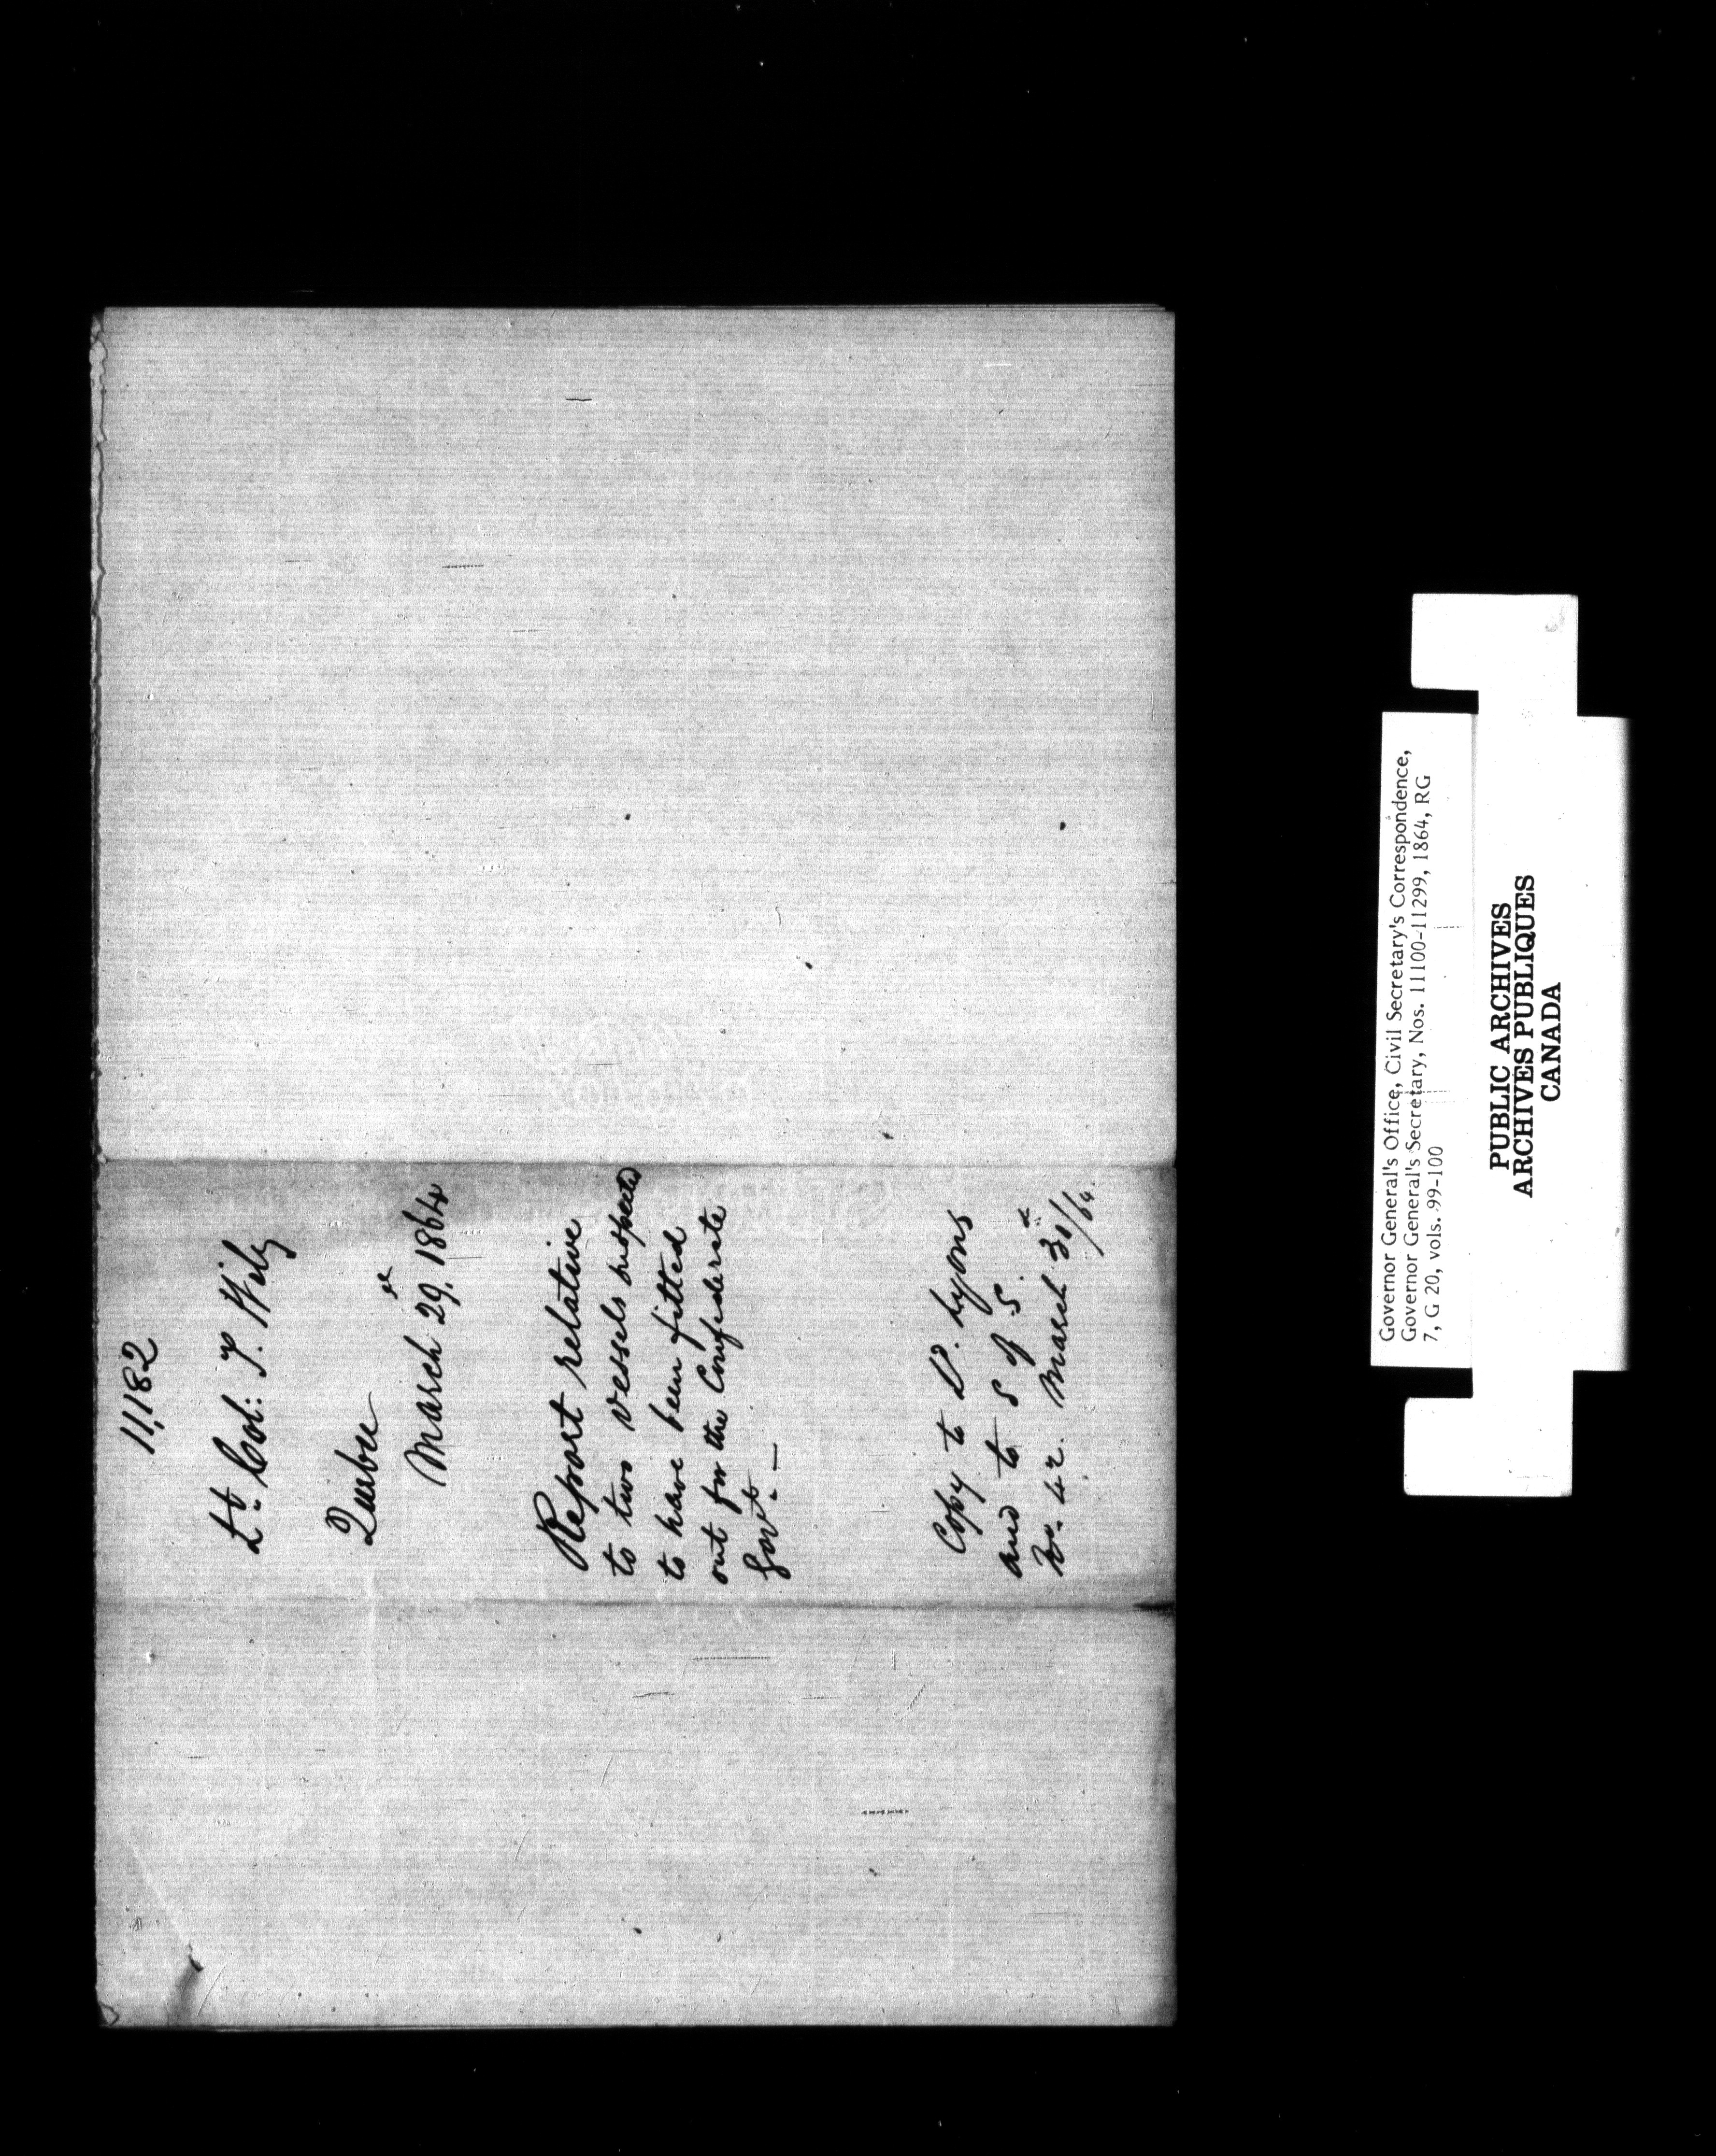 11,182
Lt. Col: T. Wily
Quebec
March 29, 1864
Report relative
to two vessels suspected
to have been fitted
out for the Confederate
Govt. —
Copy to Ld. Lyons
and to S of S.
No. 42. March 31st/64.
Governor General's Office, Civil Secretary's Correspondence,
Governor General's Secretary, Nos. 11100-11299, 1864, RG
7, G 20, vols. 99-100
PUBLIC ARCHIVES
ARCHIVES PUBLIQUES
CANADA